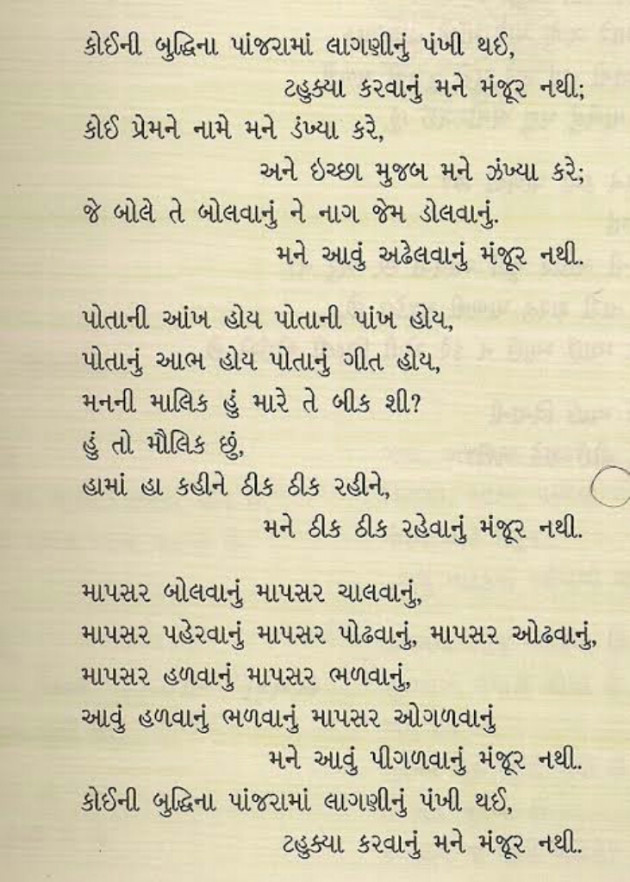 કોઈની બુદ્ધિના પાંજરામાં લાગણીનું પંખી થઈ,
ટહુક્યા કરવાનું મને મંજૂર નથી;
કોઈ પ્રેમને નામે મને ડંખ્યા કરે,
અને ઇચ્છા મુજબ મને ઝંખ્યા કરે;
જે બોલે તે બોલવાનું ને નાગ જેમ ડોલવાનું.
મને આવું અઢેલવાનું મંજૂર નથી.
પોતાની આંખ હોય પોતાની પાંખ હોય,
પોતાનું આભ હોય પોતાનું ગીત હોય,
મનની માલિક હું મારે તે બીક શી?
હું તો મૌલિક છું,
હામાં હા કહીને ઠીક ઠીક રહીને,
મને ઠીક ઠીક રહેવાનું મંજૂર નથી.
માપસર બોલવાનું માપસર ચાલવાનું,
માપસર પહેરવાનું માપસર પોઢવાનું, માપસર ઓઢવાનું,
માપસર હળવાનું માપસર ભળવાનું,
આવું હળવાનું ભળવાનું માપસર ઓગળવાનું
મને આવું પીગળવાનું મંજૂર નથી.
કોઈની બુદ્ધિના પાંજરામાં લાગણીનું પંખી થઈ,
ટહુક્યા કરવાનું મને મંજૂર નથી.